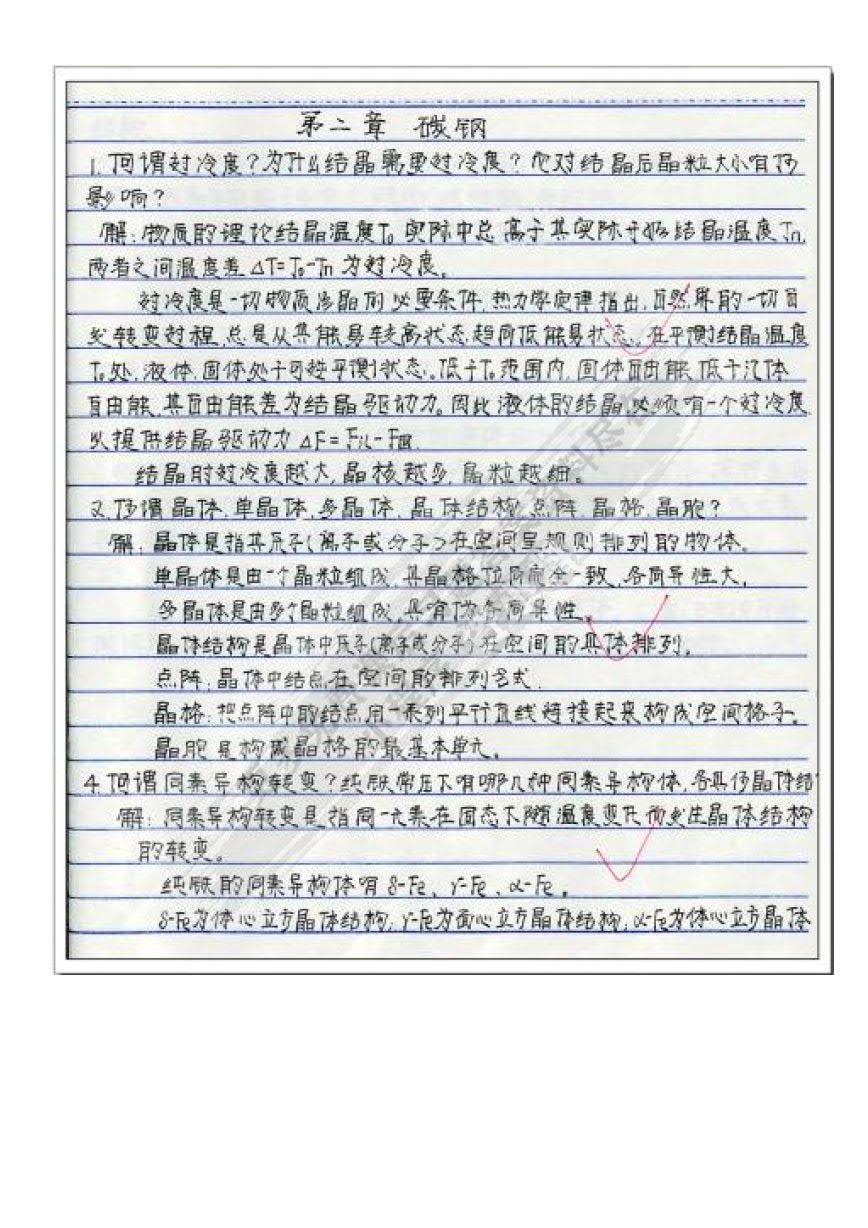 第二章 碳钢
1. 何谓过冷度？为什么结晶需要过冷度？它对结晶后晶粒大小有何
影响？
解：物质的理论结晶温度T₀实际中总高于其实际开始结晶温度Tn，
两者之间温度差ΔT=T₀-Tn为过冷度。
过冷度是一切物质结晶的必要条件，热力学定律指出，自然界的一切自
发转变过程，总是从其能量较高状态趋向低能量状态。在平衡结晶温度
T₀处，液体、固体处于可逆平衡状态。低于T₀范围内，固体自由能低于液体
自由能，其自由能差为结晶驱动力。因此液体的结晶必须有一个过冷度，
以提供结晶驱动力ΔF=F液-F固.
结晶时过冷度越大，晶核越多，晶粒越细。
2. 何谓晶体、单晶体、多晶体、晶体结构、点阵、晶格、晶胞？
解：晶体是指其原子(离子或分子)在空间呈规则排列的物体。
单晶体是由一个晶粒组成，其晶格位向完全一致，各向异性大。
多晶体是由多个晶粒组成，具有伪各向异性。
晶体结构是晶体中原子(离子或分子)在空间的具体排列。
点阵：晶体中结点在空间的排列方式.
晶格：把点阵中的结点用一系列平行直线连接起来构成空间格子。
晶胞是构成晶格的最基本单元。
4. 何谓同素异构转变？纯铁常压下有哪几种同素异构体，各具何晶体结
解：同素异构转变是指同一元素在固态下随温度变化而发生晶体结构
的转变。
纯铁的同素异构体有δ-Fe、γ-Fe、α-Fe。
δ-Fe为体心立方晶体结构；γ-Fe为面心立方晶体结构；α-Fe为体心立方晶体